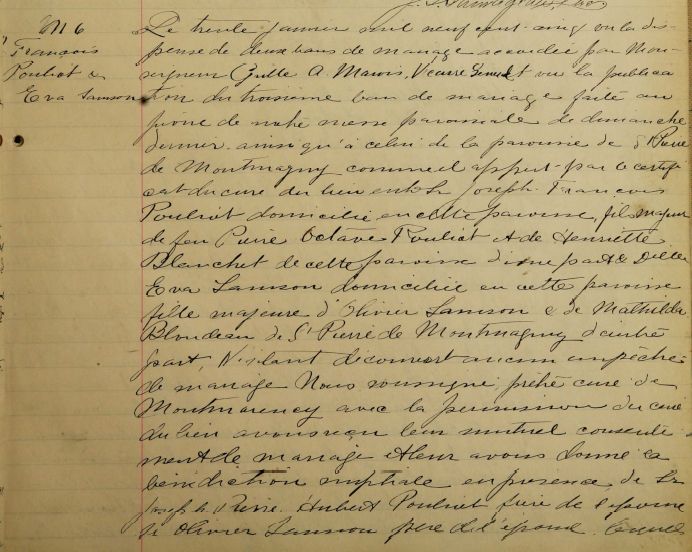 M 6
François
Pouliot &
Eva Samson
Le trente janvier mil neuf cent-cinq vu la dis-
pense de deux bans de mariage accordée par Mon-
seigneur A. Marois, Vicaire Général et vu la publica
tion du troisième ban de mariage faite au
prône de notre messe paroissiale de dimanche
dernier ainsi qu'à celui de la paroisse de St Pierre
de Montmagny comme il appert par le certifi
cat du curé du lieu entre Sr Joseph François
Pouliot domicilié en cette paroisse, fils majeur
de feu Pierre Octave Pouliot et de Henriette
Blanchet de cette paroisse d'une part & Delle
Eva Samson domiciliée en cette paroisse
fille majeure d'Olivier Samson & de Mathilda
Blondeau de St Pierre de Montmagny d'autre
part, N'étant découvert aucun empêche-
de mariage Nous soussigné, prêtre curé de
Montmorency avec la permission du curé
du lieu avons reçu leur mutuel consente
ment de mariage et leur avons donné la
bénédiction nuptiale en présence de Sr
Joseph Pierre Hubert Pouliot frère de l'époux
Sr Olivier Samson père de l'épouse